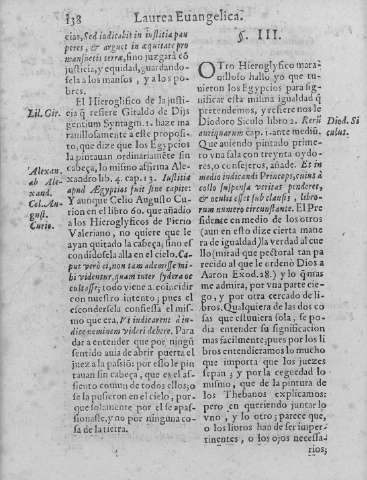 138 Laurea Euangelica.
cias, Sed indicabit in iustitia pau
peres, & arguet in æquitate pro
mansuetis terræ, sino juzgarà cõ
justicia, y equidad, guardando-
sela a los mansos, y a los po-
bres.
El Hieroglifico de la justi-
cia q̃ refiere Giraldo de Dijs
gentium Syntagm. 1. haze ma
rauillosamente a este proposi-
to, que dize que los Egypcios
la pintauan ordinariamẽte sin
cabeça, lo mismo afirma Ale-
xandro lib. 4. cap. 13. Iustitia
apud Ægyptios fuit sine capite:
Y aunque Celio Augusto Cu-
rion en el libro 60. que añadio
a los Hieroglyficos de Pierio
Valeriano, no quiere que le
ayan quitado la cabeça, sino es
condidosela alla en el cielo. Ca
put verò ei, non tam ademisse mi
bi videntur, quam inter sydera oc
cultasse; todo viene a coincidir
con nuestro intento; pues el
escondersela confiessa el mis-
mo que era, Vt indicarent à in-
dice neminem videri debere. Para
dar a entender que por ningũ
sentido auia de abrir puerta el
juez a la passiõ: por ello le pin
tauan sin cabeça, que es el as-
siento comun de todos ellos; o
se la pusieron en el cielo, por-
que solamente por el se apas-
sionasse, y no por ninguna co-
sa de la tierra.
Lil. Gir.
Alexan.
ab Ale-
xand.
Cel. Au-
gust.
Curio.
§. III.
OTro Hieroglyfico mara-
uilloso hallo yo que tu-
uieron los Egypcios para sig-
nificar esta misma igualdad q̃
pretendemos, y refiesenos le
Diodoro Siculo libro 2. Rerũ
antiquarum cap. 1. ante mediũ.
Que auiendo pintado prime-
ro vna sala con treynta oydo-
res, o consejeros, añade. Et in
medio iudicandi Princeps, cuius à
collo suspensa veritas penderet,
& oculis esset subclausis, libro-
rum numero circunstante. El Pre
sidente en medio de los otros
(aun en esto dize cierta mane
ra de igualdad) la verdad al cue
llo (mirad que pectoral tan pa
recido al que le ordenò Dios a
Aaron Exod. 28.) y lo q̃ mas
me admira, por vna parte cie-
go, y por otra cercado de li-
bros. Qualquiera de las dos co
sas que estuuiera sola, se po-
dia entender su significacion
mas facilmente; pues por los li
bros entendieramos lo mucho
que importa que los juezes
sepan; y por la ceguedad lo
mismo, que de la pintura de
los Thebanos explicamos:
pero en queriendo juntar lo
vno, y lo otro; parece que,
o los libros han de ser imper-
tinentes, o los ojos necessa-
Diod. Si
culus.
rios;